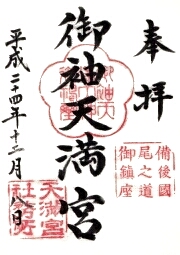 奉拝
備後國
尾之道
御鎮座
御袖天満宮
平成二十四年十二月八日
天満宮
社務所